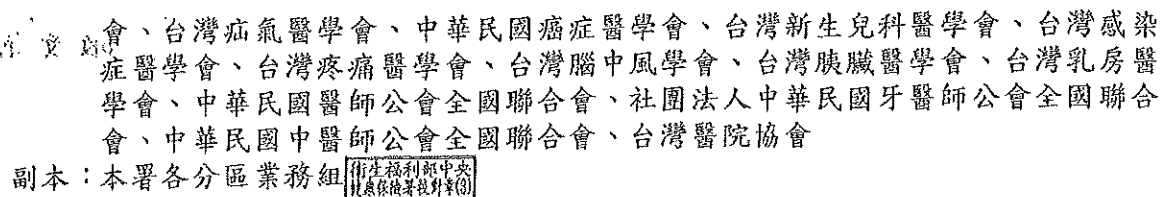 會、台灣疝氣醫學會、中華民國癌症醫學會、台灣新生兒科醫學會、台灣感染
症醫學會、台灣疼痛醫學會、台灣腦中風學會、台灣胰臟醫學會、台灣乳房醫
學會、中華民國醫師公會全國聯合會、社團法人中華民國牙醫師公會全國聯合
會、中華民國中醫師公會全國聯合會、台灣醫院協會
副本：本署各分區業務組
衛生福利部中央
健康保險署校對章(3)